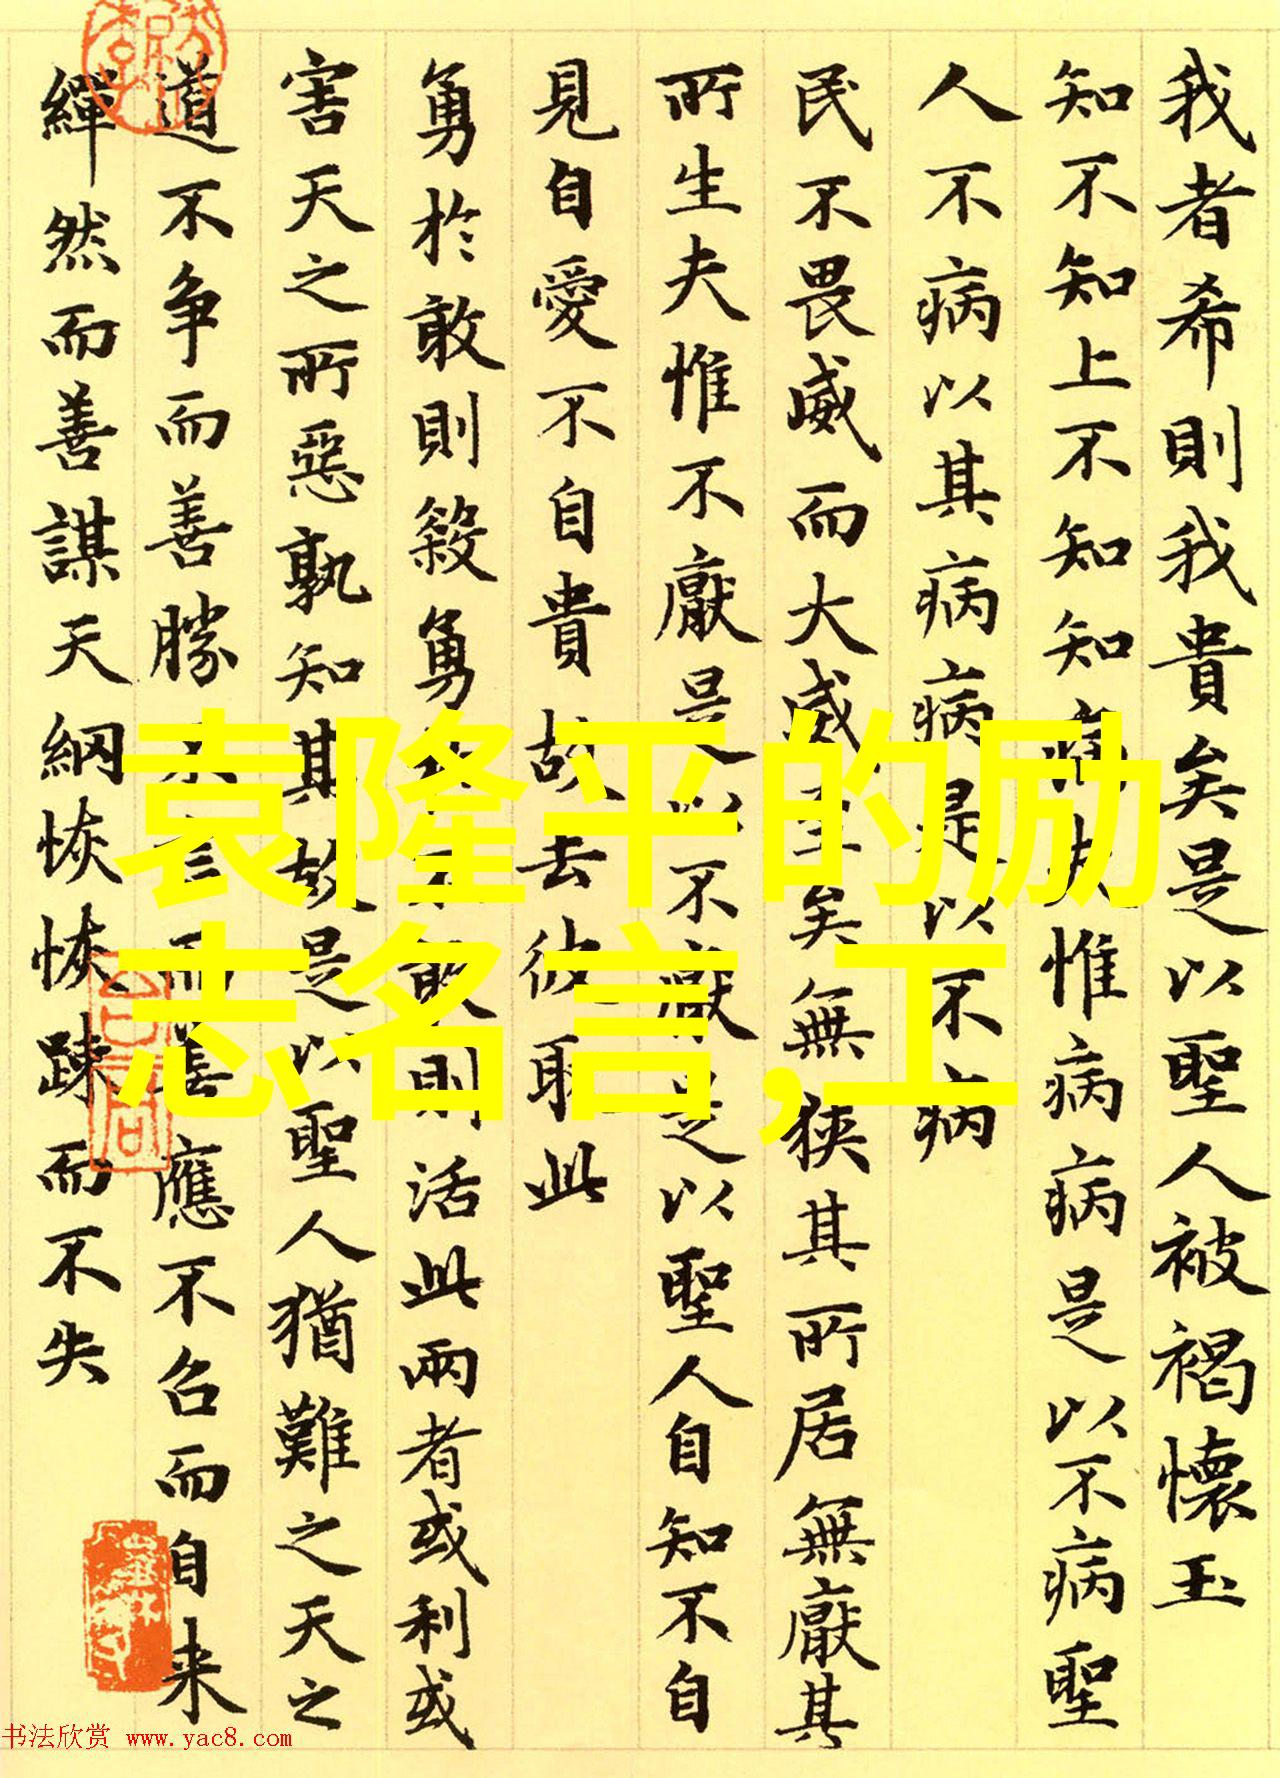 我者希則我貴矣是以聖人被褐懷玉
知不知上不知知病夫惟病病是以不病聖
人不病以其病病病是以不病
民不畏威而大威至矣無狹其所居無厭其
所生夫惟不厭是以不厭是以聖人自知不自
見自愛不自貴故去彼取此
勇於敢則殺勇於不敢則活此兩者或利或
害天之所惡孰知其故是以聖人猶難之天之
道不争而善勝不言而善應不召而自来
繟然而善謀天網恢恢踈而不失
袁隆平的励
志名言,工
书法欣赏 www.yac8.com